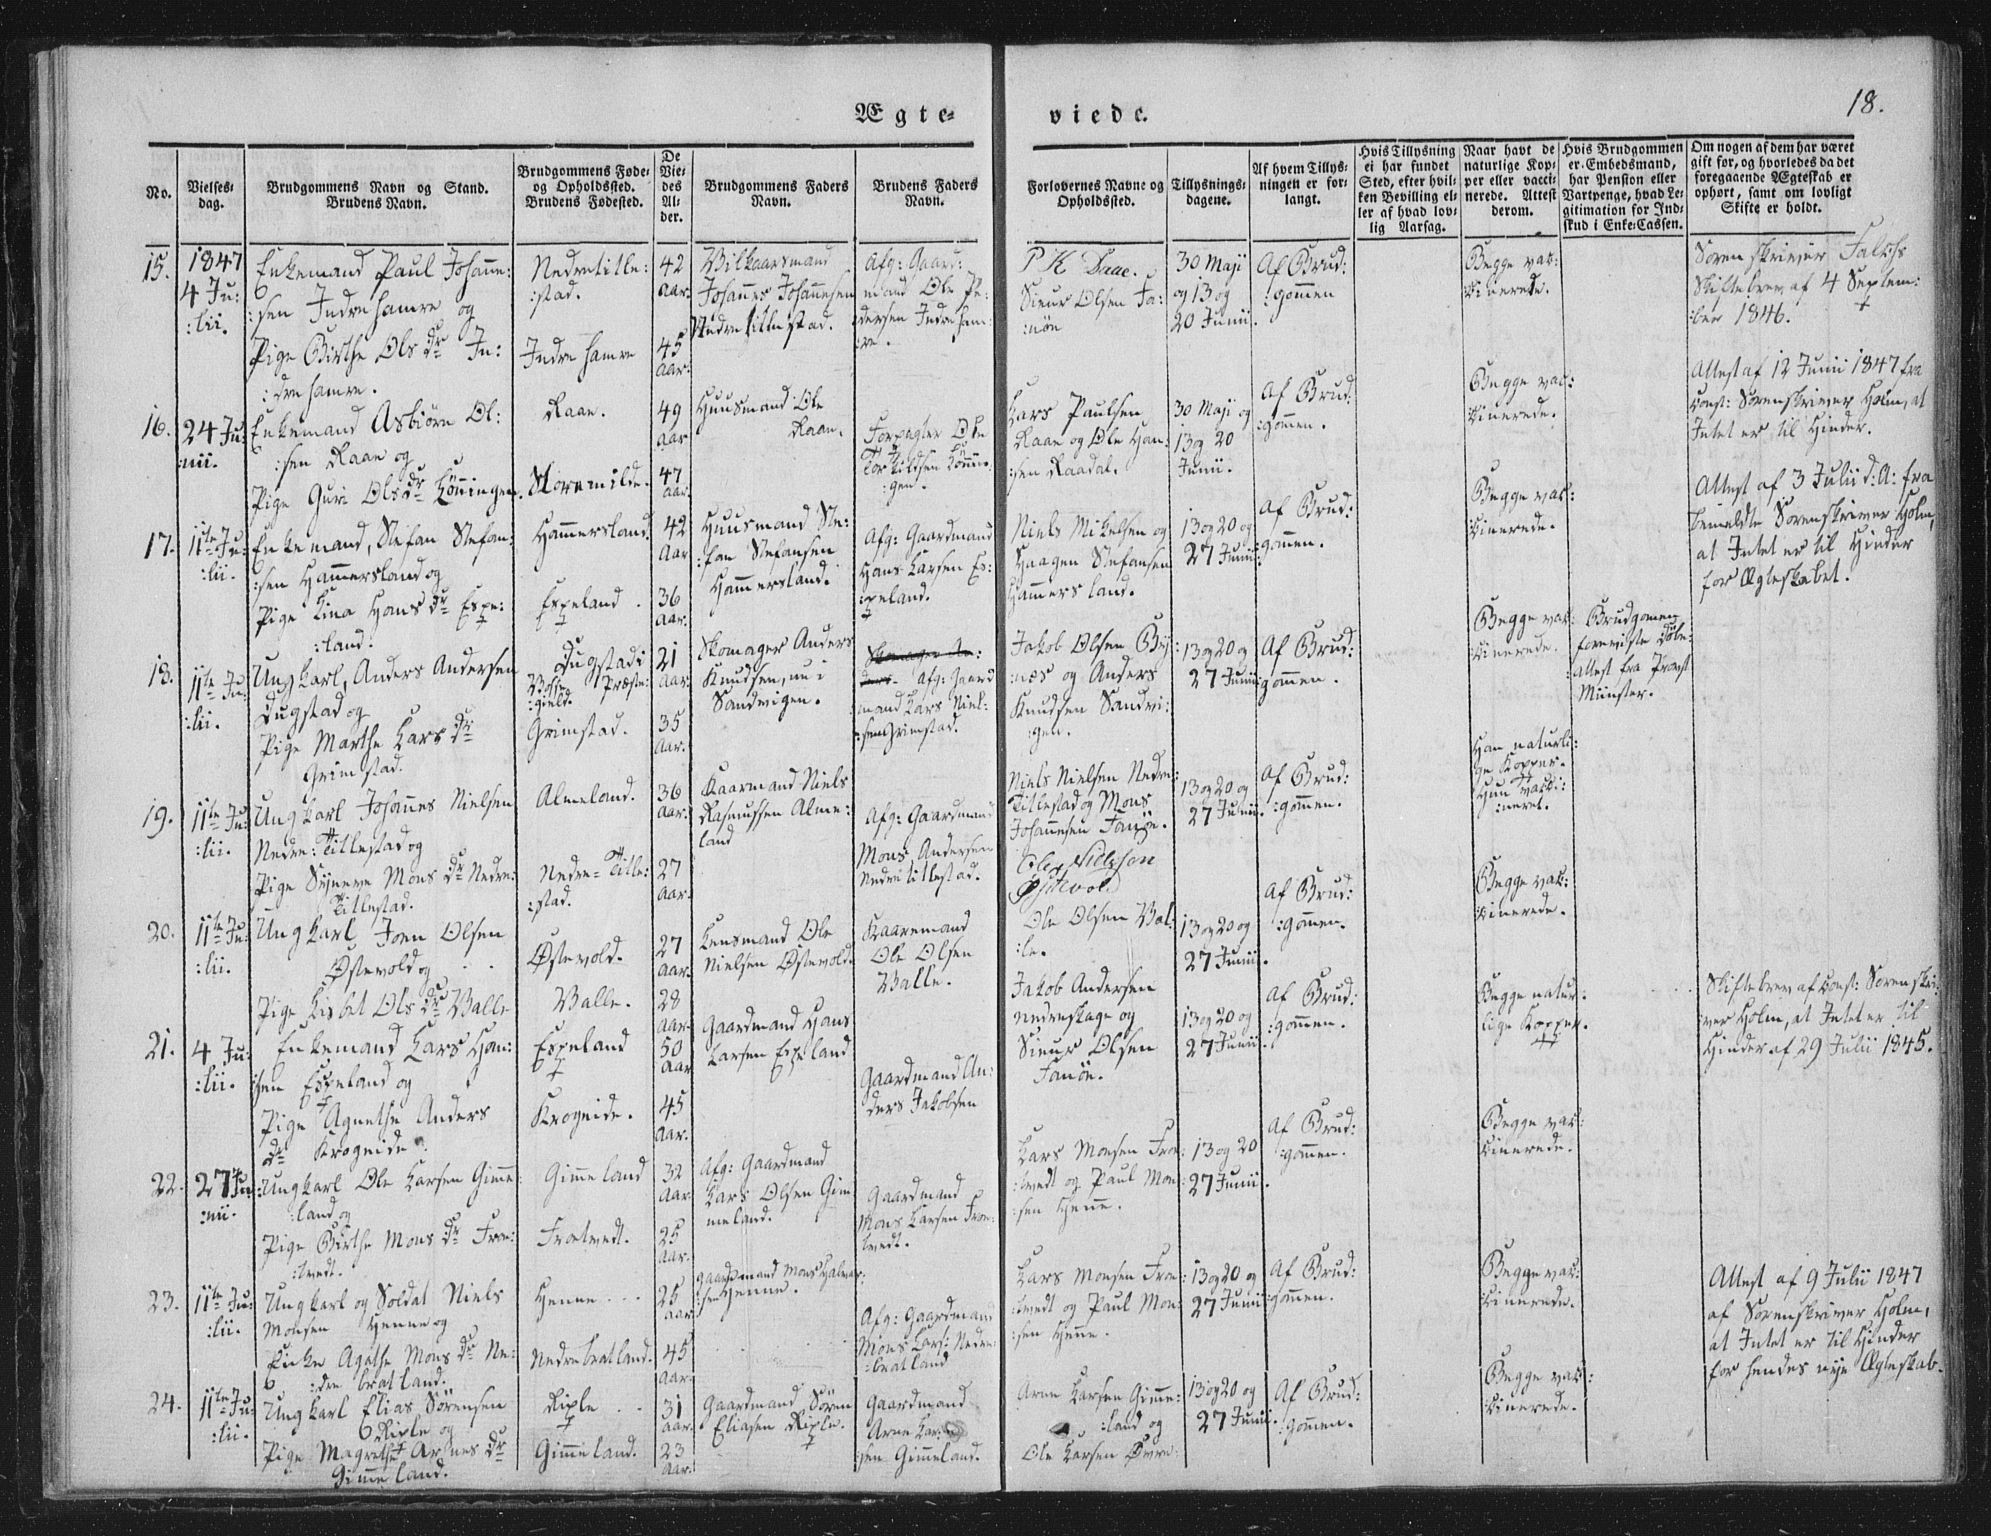 Ægte-
viede.
18.
No.
Vielses-
dag.
Brudgommens Navn og Stand.
Brudens Navn.
Brudgommens Føde-
og Opholdssted.
Brudens Fødested.
De
Vie-
des
Al-
der.
Brudgommens Faders
Navn.
Brudens Faders
Navn.
Forlovernes Navne og
Opholdssted.
Tillysnings-
dagene.
Af hvem Tillys-
ningen er for-
langt.
Hvis Tillysning
ei har fundet
Sted, efter hvil-
ken Bevilling el-
ler af hvad lov-
lig Aarsag.
Naar havt de
naturlige Kop-
per eller vacci-
nerede. Attest
derom.
Hvis Brudgommen
er Embedsmand,
har Pension eller
Vartpenge, hvad Le-
gitimation for Ind-
skud i Enke-Cassen.
Om nogen af dem har været
gift før, og hvorledes da det
foregaaende Ægteskab er
ophørt, samt om lovligt
Skifte er holdt.
15.
1847
4 Ju:
:lii.
Enkemand Paul Johanne:
:sen Indrehamre og
Pige Birthe Ols dr In:
:drehamre.
Nedretitle:
:stad.
Indrehamre
42
Aar.
45
Aar.
Vilkaarsmand
Johannes Johannesen
Nedretitlestad.
Afg: Gaard:
mand Ole Pe:
:dersen Indreham:
:re.
P K Daae.
Sieur Olsen Fa:
:nøe
30 Maji
og 13 og
20 Junii.
Af Brud:
:gommen
Begge vac:
:cinerede.
Sorenskriver Falchs
Skiftebrev af 4 Septem:
:ber 1846.
16.
24 Ju:
:nii.
Enkemand Asbiørn Ol:
:sen Raae og
Pige Guri Ols dr Kønningen.
Raae.
Storemilde.
49
Aar
47
Aar.
Huusmand Ole
Raae.
Forpagter Ole
Torkildsen Kønnin:
:gen.
Lars Paulsen
Raae og Ole Han:
:sen Raadal.
30 Maji og
13 og 20
Junii.
Af Brud:
:gommen.
Begge vac:
:cinerede.
Attest af 12 Junii 1847 fra
Const: Sorenskriver Holm, at
Intet er til Hinder.
17.
11te Ju:
:lii.
Enkemand, Stefan Stefan:
:sen Hammersland og
Pige Lina Hans dr Espe:
:land.
Hammersland.
Espeland.
42
Aar
36
Aar.
Huusmand Ste:
:fan Stefansen
Hammersland.
Afg: Gaardmand
Hans Larsen Es:
:peland.
Niels Mikelsen og
Haagen Stefansen
Hammersland.
13 og 20 og
27 Junii.
Af Brud:
:gommen.
Begge vac:
:cinerede.
Attest af 3 Julii d: A: fra
bemeldte Sorenskriver Holm,
at Intet er til Hinder
for Ægteskabet.
18.
11te Ju:
:lii.
Ungkarl, Anders Andersen
Dugstad og
Pige Marthe Lars dr
Grimstad.
Dugstad i
Præste:
:gield.
Grimstad.
21
Aar.
35
Aar.
Skomager Anders
Knudsen, nu i
Sandvigen.
Afg: Gaard
mand Lars Niel:
:sen Grimstad.
Jakob Olsen By:
:næs og Anders
Knudsen Sandvi:
:gen.
13 og 20 og
27 Junii
Af Brud:
:gommen.
Begge vac:
:cinerede.
Brudgomen
foreviste Døbe:
:attest fra Provst
Münster.
19.
11te Ju:
:lii.
Ungkarl Johannes Nielsen
Nedre: Titlestad og
Pige Synneve Mons dr Nedre:
Titlestad.
Almeland.
Nedre= Title:
:stad.
36
Aar.
27
Aar.
Kaarmand Niels
Rasmussen Alme:
land
Afg: Gaardmand
Mons Andersen
Nedretitlestad.
Niels Nielsen Nedre:
Titlestad og Mons
Johannesen Fanøe.
13 og 20 og
27 Junii.
Af Brud:
:gommen.
Han naturli:
ge Kopper.
Hun vacci:
:neret.
20.
11te Ju:
:lii.
Ungkarl Joen Olsen
Østevold og
Pige Lisbet Ols dr Valle
Østevold.
Valle.
27
Aar.
28
Aar.
Lensmand Ole
Nielsen Østevold.
Kaaremand
Ole Olsen
Valle.
Ole Nielsen
Østevold
Ole Olsen Val:
:le.
13 og 20 og
27 Junii.
Af Brud:
:gommen.
Begge vac:
:cinerede.
21.
4 Ju:
:lii.
Enkemand Lars Han:
:sen Espeland og
Pige Agnethe Anders
dr Krogeide.
Espeland
Krogeide.
50
Aar
45
Aar.
Gaardmand Hans
Larsen Espeland
Gaardmand An:
ders Jakobsen
Jakob Andersen
Nedreskage og
Sieur Olsen
Fanøe.
13 og 20 og
27 Junii.
Af Brud:
:gommen.
Begge natur:
lige Kopper.
Skiftebrev af Const: Sorenskri:
ver Holm, at Intet er til
Hinder af 29 Julii 1845.
22.
27 Ju:
:nii.
Ungkarl Ole Larsen Gimme:
:land og
Pige Birthe Mons dr Froe:
:tvedt.
Gimmeland
Froetvedt.
32
Aar.
25
Aar.
Afg: Gaardmand
Lars Olsen Gim
meland.
Gaardmand
Mons Larsen Froe:
tvedt.
Lars Monsen Froe:
:tvedt og Paul Mon:
:sen Henne.
13 og 20
27 Junii.
Af Brud:
:gommen.
Begge vac:
:cinerede.
23.
11te Ju:
:lii.
Ungkarl og Soldat Niels
Monsen Henne og
Enke Agathe Mons dr Ne:
:dre bratland.
Henne
Nedrebratland.
25
Aar
45
Aar.
Gaardmand Mons Halvor:
:sen Henne.
Afg: Gaardmand
Mons Lars: Nedre:
:bratland
Lars Monsen Froe:
:tvedt og Paul Mon:
:sen Henne.
13 og 20 og
27 Junii
Af Brud:
:gommen.
Begge vac:
:cinerede.
Attest af 9 Julii 1847
af Sorenskriver Holm,
at Intet er til Hinder
for hendes nye Ægteskab.
24.
11te Ju:
:lii.
Ungkarl Elias Sørensen
Riple og
Pige Magrethe Arnes dr
Gimmeland.
Riple
Gimmeland.
31
Aar.
23
Aar.
Gaardmand Søren
Eliasen Riple.
Gaardmand
Arne Lar:
:sen Gimmeland.
Arne Larsen Gimme:
:land og
Ole Larsen Øvre:
13 og 20 og
27 Junii.
Af Brud:
:gommen.
Begge vac:
:cinerede.